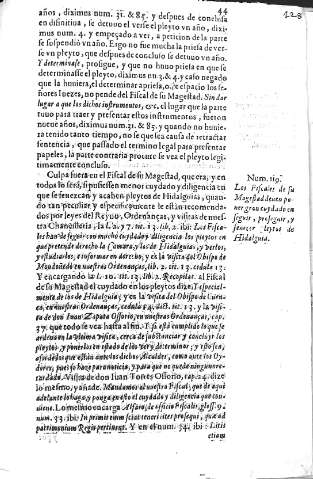 44
años, diximus num. 31. & 85. y despues de conclusa
en difinitiua, se detuuo el verse el pleyto vn año, dixi-
mus num. 4. y empeçado a ver, a peticion de la parte
se suspendió vn año. Ergo no fue mucha la priesa de ver-
se vn pleyto, que despues de concluso se detuuo vn año.
Y determinose, prosigue, y que no huuo priesa en que se
determinasse el pleyto, diximus en nu. 3. & 4. y caso negado
que la huuiera, el determinar apriesa, o de espacio los se-
ñores Iuezes, no pende del Fiscal de su Magestad. Sin dar
lugar a que los dichos instrumentos, &c. el lugar que la parte
tuuo para traer y presentar estos instrumentos, fueron
nueue años, diximus num. 31. & 85. y quando no huuie-
ra tenido tanto tiempo, no se que sea causa de retractar
sentencia, que passado el termino legal para presentar
papeles, la parte contraria procure se vea el pleyto legi-
timamente concluso.
Culpa fuera en el Fiscal de su Magestad, que era, y en
todos lo será, si pusiessen menor cuydado y diligencia en
que se fenezcan y acaben pleytos de Hidalguias, quando
tan precissa y especificamente le estan recomenda-
dos por leyes del Reyno, Ordenanças, y visitas de nuestra
Chancilleria, la l. 17. tit. 13. lib. 2. ibi: Los Fisca-
les han de seguir con mucho cuydado y diligencia los pleytos en
que pretende derecho la Camara, y los de Hidalguias, y verlos,
y estudiarlos, e informar en derecho; y en la visita del Obispo de
Mondoñedo en nuestras Ordenanças, lib. 2. tit. 13. cedula 13.
Y encargando la l. 10. tit. 13. lib. 2. Recopilat. al Fiscal
de su Magestad el cuydado en los pleytos dize, Especial-
mente de los de Hidalguia; y en la visita del Obispo de Cuen-
ca, en nuestras ordenanças, cedula 54. dict. tit. 13. y la visita
de don Iuan Zapata Ossorio, en nuestras Ordenanças, cap.
37. que todo se vea hasta al fin. Y se està cumplido lo que se
ordenò en la vltima visita, cerca de substanciar y concluyr los
pleytos, y ponerlos en estado de los ver y determinar; y esto sea,
assi de los que estàn ante los dichos Alcaldes, como ante los Oy-
dores, pues se haze por annoncia, y para que no quede ninguno re-
cordado. Visita de don Iuan Torres Ossorio, cap. 24. dize
lo mesmo, y añade. Mandamos al nuestro Fiscal, que de aqui
adelante lo haga, y ponga en esto el cuydado y diligencia que con-
uiene. Lo mesmo encarga Alfaro, de officio Fiscalis, gloss. 9.
num. 33. ibi: In primis enim sciat teneri lites prosequi, quæ ad
patrimonium Regis pertinent. Y en el num. 34. ibi: Litis
etiam
Num. 119.
Los Fiscales de su
Magestad deuen po-
ner gran cuydado en
seguir, proseguir, y
fenecer pleytos de
Hidalguia.